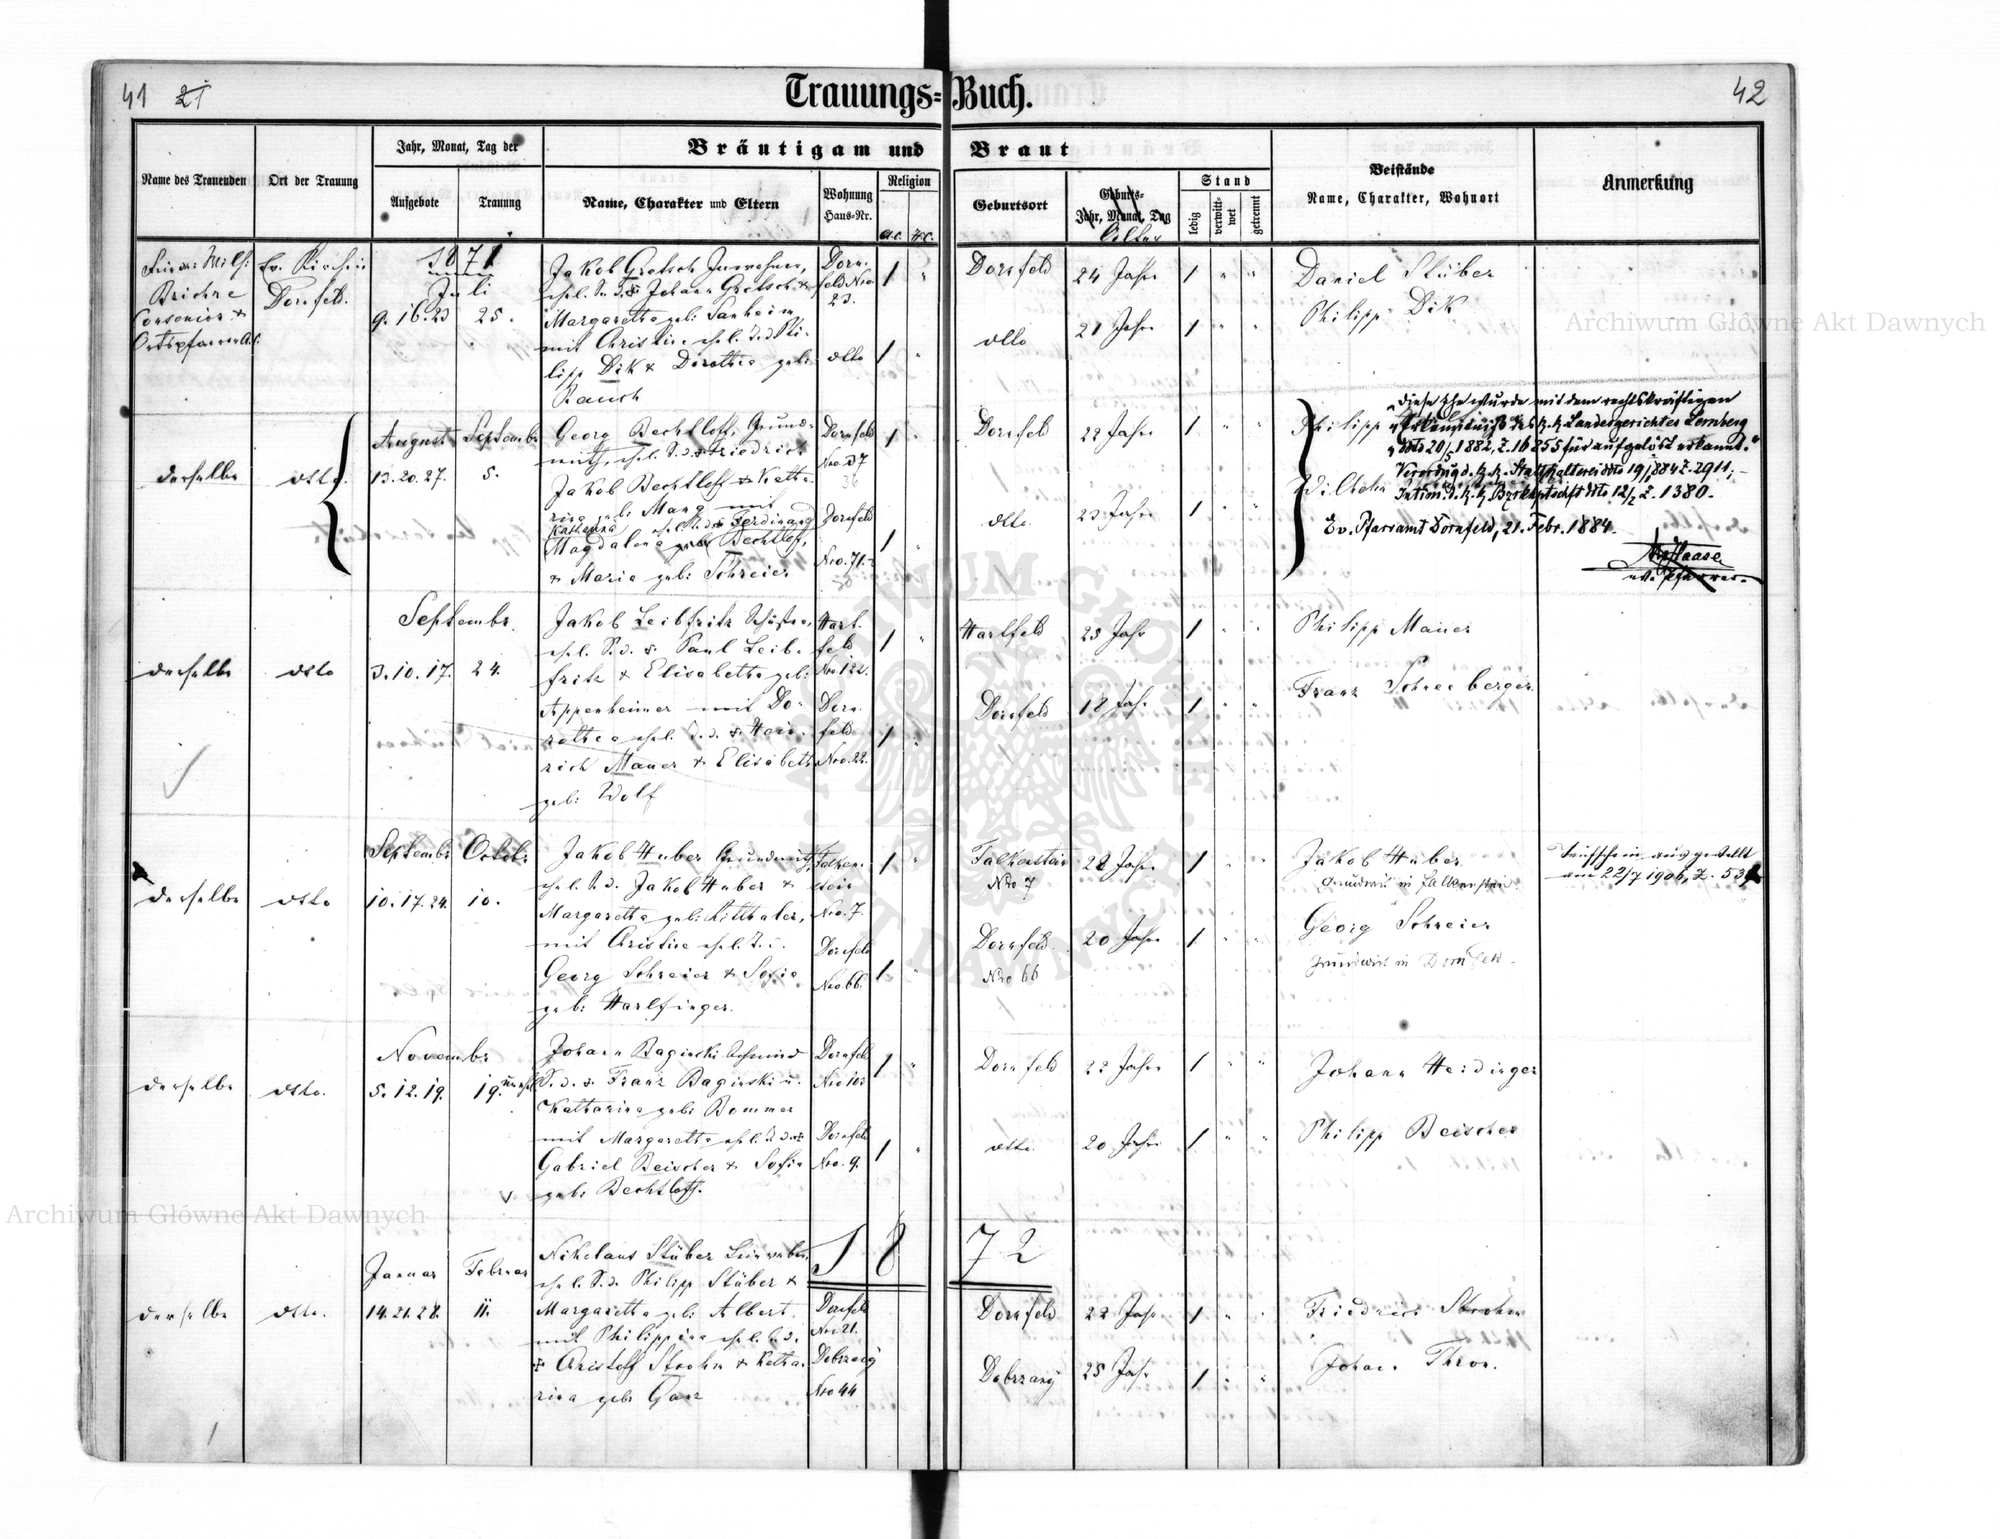 41 21
Trauungs-Buch.
42
Name des Trauenden
Ort der Trauung
Jahr, Monat, Tag der
Aufgebote
Trauung
Bräutigam und Braut
Name, Charakter und Eltern
Wohnung
Haus-Nr.
Religion
A.C. H.C.
Geburtsort
Geburts-
Jahr, Monat, Tag
Alter
Stand
ledig
verwitt-
wet
getrennt
Beistände
Name, Charakter, Wohnort
Anmerkung
Ev. Kirche in
Dornfeld.
1871
Juli
9. 16. 23
25.
Jakob Gretsch Inwohner,
ehel. S. d. Johann Gretsch &
Margaretha geb:
mit Christine ehel. T. d. Phi-
lipp Dik & Dorothea geb:
Rauch
Dorn-
feld Nro.
23.
dtto
Dornfeld
24 Jahre
1
dtto
21 Jahre
1
Daniel Stüber
Philipp Dik
derselbe
dtto.
August
13. 20. 27.
Septembr
5.
Georg Bechtloff, Grund-
wirth, ehel. S. d. Friedrich
Jakob Bechtloff & Katha-
rina geb: Mang mit
Katharina ehel. T. d. Ferdinand
Magdalena geb: Bechtlof,
& Maria geb: Schreier
Dornfeld
Nro. 37
36
Dornfeld
Nro. 71.
Dornfeld
22 Jahre
1
dtto
23 Jahre
1
Philipp
Wilhelm
"Diese Ehe wurde mit dem rechtskräftigen
Erkenntniß des k. k. Landesgerichtes Lemberg
dto 20/5 1882, Z. 16255 für aufgelöst erkannt."
Verordng d. k. k. Statthalterei dto 19/1 884 Z. 2911,
Intim. d. k. k. Bzrkhptschft dto 12/2 Z. 1380.
Ev. Pfarramt Dornfeld, 21. Febr. 1884.
Haase
ev. Pfarrer.
derselbe
dtto
Septembr.
3. 10. 17.
24.
Jakob Leibfritz Schuster,
ehel. S. d. Paul Leib-
fritz & Elisabetha geb:
Appenheimer mit Do-
rothea ehel. T. d. Hein-
rich Mauer & Elisabeth
geb: Wolf
Hart-
feld
Nro. 122.
Dorn-
feld
Nro. 22.
Hartfeld
25 Jahr
1
Dornfeld
18 Jahr
1
Philipp Mauer
Franz Schneeberger.
derselbe
dtto
Septembr
10. 17. 24.
Octobr
10.
Jakob Huber Grundwirth,
ehel. S. d. Jakob Huber &
Margaretha geb: Ritthaler,
mit Christine ehel. T. d.
Georg Schreier & Sofia
geb: Harlfinger.
Falken-
stein
Nro. 7.
Dornfeld
Nro 66.
Falkenstein
Nro 7
22 Jahre
1
Dornfeld.
Nro 66
20 Jahre
1
Jakob Huber
Grundwirt in Falkenstein.
Georg Schreier
Grundwirt in Dornfeld.
Taufschein ausgestellt
am 22/7 1906, Z.
derselbe
dtto.
Novembr
5. 12. 19.
19.
Johann Baginski Schmied
S. d. Franz Baginski u.
Katharina geb: Bommer
mit Margaretha ehel. T. d.
Gabriel Beischer & Sofia
geb: Bechtloff.
Dornfeld
Nro 102
Dornfeld
Nro. 9.
Dornfeld
22 Jahre
1
dtto.
20 Jahre
1
Johann Heidinger
Philipp Beischer
1872
derselbe
dtto.
Januar
14. 21. 28.
Februar
11.
Nikolaus Stüber Leinweber
ehel. S. d. Philipp Stüber &
Margaretha geb: Albert.
mit Philippine ehel. T. d.
Christoff Strohm & Katha-
rina geb: Ganz
Dornfeld
Nro 21.
Dobrzany
Nro 44
Dornfeld
22 Jahr
1
Dobrzany
25 Jahr
1
Friedrich Strohm
Johann Thron.
Archiwum Główne Akt Dawnych
Archiwum Główne Akt Dawnych
ARCHIWUM GŁÓWNE AKT DAWNYCH